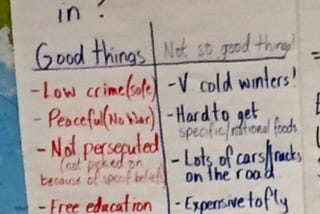 in?
Good things
Not so good things!
- Low crime (safe)
- Peaceful (No War)
- Not persecuted
(not picked on
because of specif beliefs
- Free education
- V cold winters!
- Hard to get
specific/national foods
- Lots of cars/trucks
on the road
- Expensive to fly